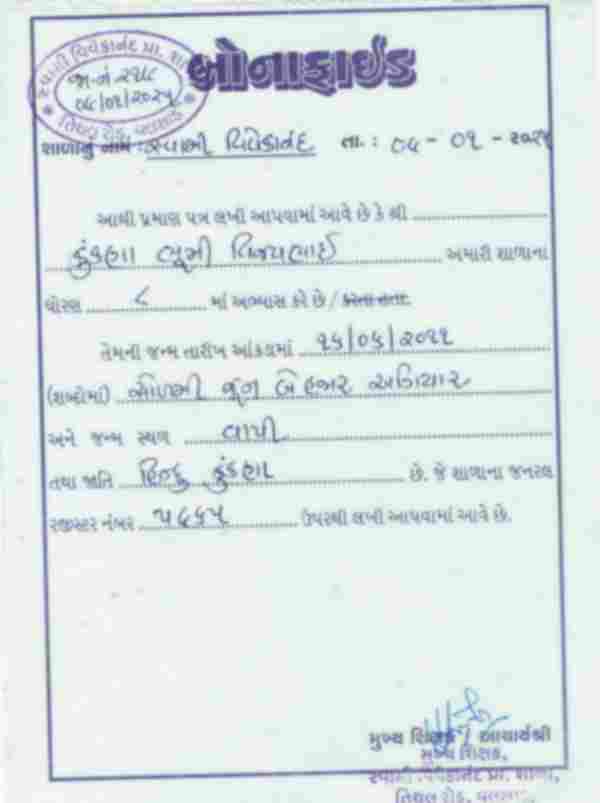 સ્વામી વિવેકાનંદ પ્રા. શાળા
જા.નં ૨૧૮
૦૮/૦૧/૨૦૨૫
તિથલ રોડ, વલસાડ
બોનાફાઈડ
શાળાનું નામ : સ્વામી વિવેકાનંદ તા. : ૦૮ - ૦૧ - ૨૦૨૫
આથી પ્રમાણ પત્ર લખી આપવામાં આવે છે કે શ્રી
કુંકણા ભૂમી વિજયભાઈ અમારી શાળાના
ધોરણ ૮ માં અભ્યાસ કરે છે / કરતા હતા.
તેમની જન્મ તારીખ આંકડામાં ૧૬/૦૬/૨૦૧૧
(શબ્દોમાં) સોળમી જૂન બેહજાર અગિયાર
અને જન્મ સ્થળ વાપી
તથા જાતિ હિન્દુ કુંકણા છે. જે શાળાના જનરલ
રજીસ્ટર નંબર ૫૬૬૫ ઉપરથી લખી આપવામાં આવે છે.
મુખ્ય શિક્ષક / આચાર્યશ્રી
મુખ્ય શિક્ષક,
સ્વામી વિવેકાનંદ પ્રા. શાળા,
તિથલ રોડ, વલસાડ.